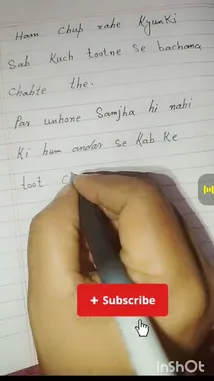 Ham Chup rahe Kyunki
Sab Kuch tootne se bachana
Chahte the.
Par unhone Samjha hi nahi
Ki hum andar se Kab Ke
toot
+ Subscribe
InShOt